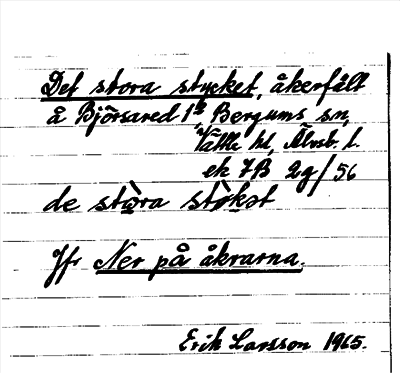 Det stora stycket, åkerfält
å Björsared 1² Bergums sn,
Vättle hd, Älvsb. l.
ek 7B 2g/56
de stọ̀ra stø̀kət
Jfr Ner på åkrarna.
Erik Larsson 1965.